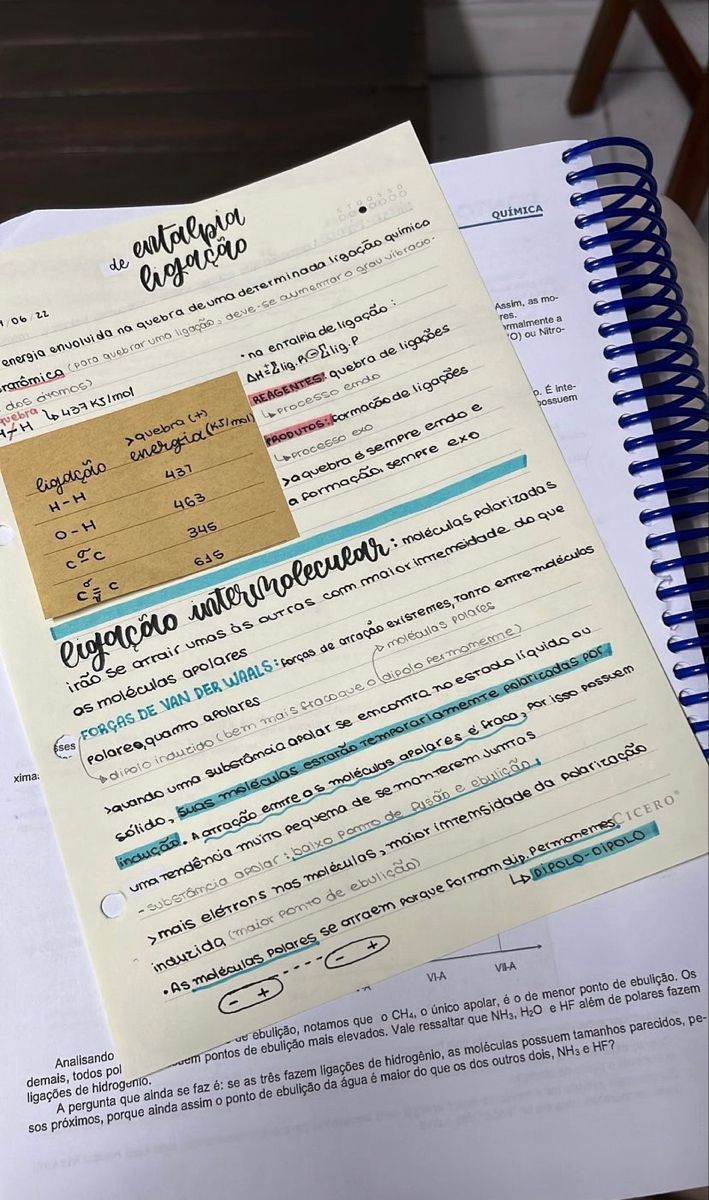 QUÍMICA
entalpia
de ligação
/06/22
energia envolvida na quebra de uma determinada ligação químico
(para quebrar uma ligação, deve-se aumentar o grau vibracio-
dos átomos)
quebra
H-H ↳ 437 KJ/mol
>quebra (+)
ligação energia (KJ/mol)
H-H 437
O-H 463
C σ C 345
C σ π C 615
• na entalpia de ligação:
ΔH=Σlig.R⊖Σlig.P
REAGENTES: quebra de ligações
↳processo endo
PRODUTOS: formação de ligações
↳processo exo
>a quebra é sempre endo e
a formação, sempre exo
Assim, as mo-
res.
ormalmente a
O) ou Nitro-
o. É inte-
possuem
ligação intermolecular: moléculas polarizadas
irão se atrair umas às outras com maior intensidade do que
as moléculas apolares
FORÇAS DE VAN DER WAALS: forças de atração existentes, tanto entre moléculas
polares, quanto apolares
↳ moléculas polares
↳dipolo induzido (bem mais fraco que o dipolo permanente)
>quando uma substância apolar se encontra no estado líquido ou
sólido, suas moléculas estarão temporariamente polarizadas por
indução. A atração entre as moléculas apolares é fraca, por isso possuem
uma tendência muito pequena de se manterem juntas
-substância apolar: baixo ponto de fusão e ebulição
>mais elétrons nas moléculas, maior intensidade da polarização
induzida (maior ponto de ebulição)
• As moléculas polares se atraem porque formam dip. permanentes
↳ DIPOLO-DIPOLO
- + ---- - +
CICERO®
sses
xima
VI-A
VII-A
Analisando
de ebulição, notamos que o CH₄, o único apolar, é o de menor ponto de ebulição. Os
demais, todos pol
pontos de ebulição mais elevados. Vale ressaltar que NH₃, H₂O e HF além de polares fazem
ligações de hidrogênio.
A pergunta que ainda se faz é: se as três fazem ligações de hidrogênio, as moléculas possuem tamanhos parecidos, pe-
sos próximos, porque ainda assim o ponto de ebulição da água é maior do que os dos outros dois, NH₃ e HF?